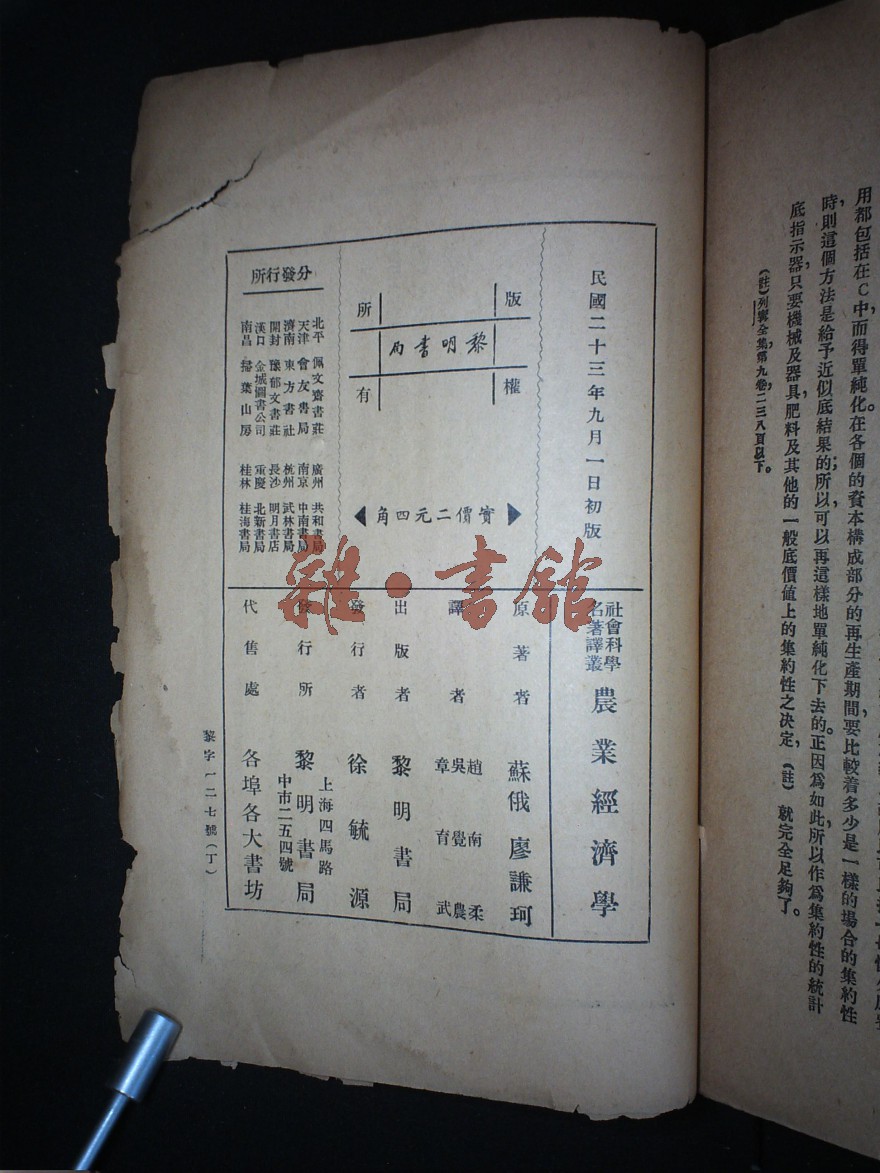 用都包括在C中，而得單純化。在各個的資本構成部分的再生產期間，要比較着多少是一樣的場合的集約性
時，則這個方法是給予近似底結果的；所以可以再這樣地單純化下去的。正因爲如此，所以作爲集約性的統計
底指示器，只要機械及器具，肥料及其他的一般底價値上的集約性之決定，（註）就完全足夠了。
（註）列寧全集，第九卷，二三八頁以下。
民國二十三年九月一日初版
版權
所有
黎明書局
實價二元四角
分發行所
北平 佩文齋書莊 廣州 共和書局
天津 會友書局 南京 中南書局
濟南 東方書社 杭州 武林書局
開封 豫郁文書莊 長沙 明月書店
漢口 金城圖書公司 重慶 北新書局
南昌 掃葉山房 桂林 桂海書局
社會科學
名著譯叢
農業經濟學
原著者 蘇俄廖謙珂
譯者 趙南柔
吳覺農
章育武
出版者 黎明書局
發行者 徐毓源
發行所 上海四馬路
黎明書局
中市二五四號
代售處 各埠各大書坊
黎字一二七號（丁）
雜·書舘